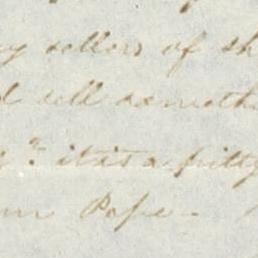 sellers of sh
sell someth
it is a pitty
Pope -